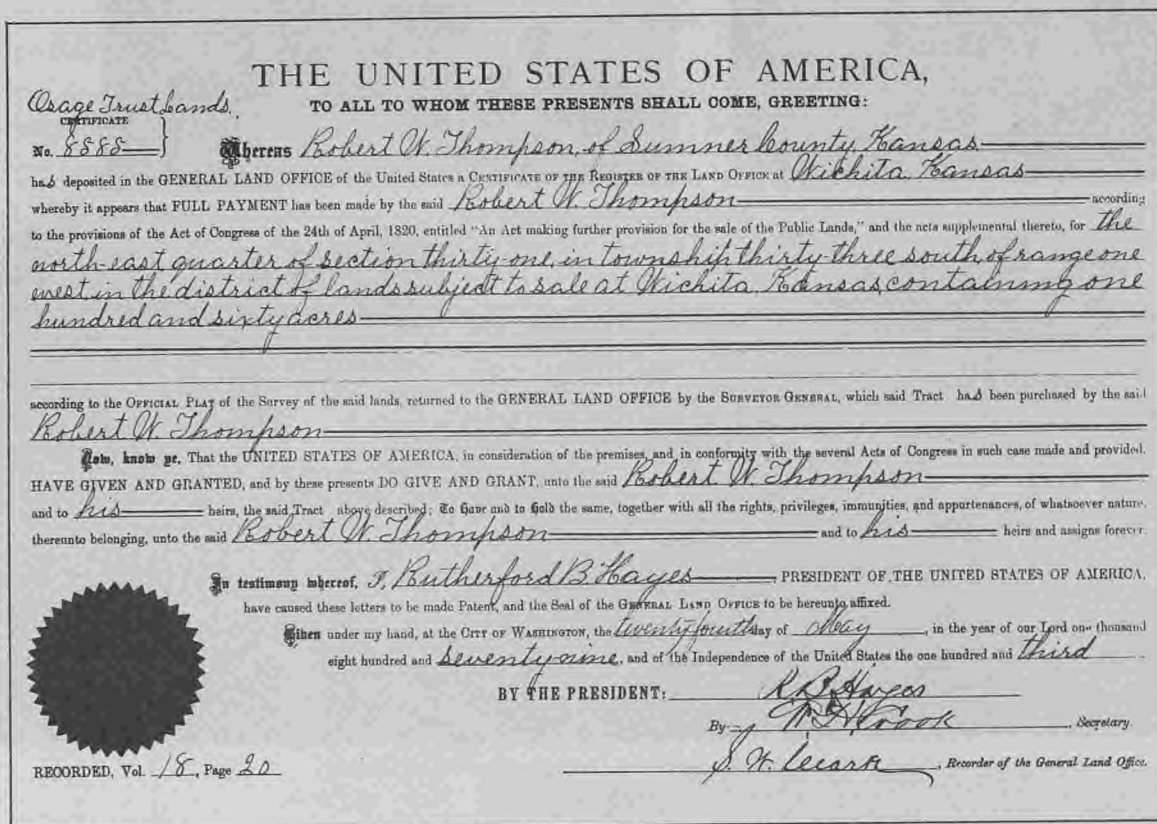 THE UNITED STATES OF AMERICA,
Osage Trust Lands.
TO ALL TO WHOM THESE PRESENTS SHALL COME, GREETING:
CERTIFICATE
No. 8888 } Whereas Robert W. Thompson, of Sumner County Kansas
has deposited in the GENERAL LAND OFFICE of the United States a CERTIFICATE OF THE REGISTER OF THE LAND OFFICE AT Wichita Kansas
whereby it appears that FULL PAYMENT has been made by the said Robert W. Thompson according
to the provisions of the Act of Congress of the 24th of April, 1820, entitled "An Act making further provision for the sale of the Public Lands," and the acts supplemental thereto, for the
north-east quarter of section thirty-one, in township thirty-three south, of range one
west in the district of lands subject to sale at Wichita, Kansas, containing one
hundred and sixty acres
according to the OFFICIAL PLAT of the Survey of the said lands, returned to the GENERAL LAND OFFICE by the SURVEYOR GENERAL, which said Tract has been purchased by the said
Robert W. Thompson
Now, know ye, That the UNITED STATES OF AMERICA, in consideration of the premises, and in conformity with the several Acts of Congress in such case made and provided,
HAVE GIVEN AND GRANTED, and by these presents DO GIVE AND GRANT, unto the said Robert W. Thompson
and to his heirs, the said Tract above described; To Have and to Hold the same, together with all the rights, privileges, immunities, and appurtenances, of whatsoever nature,
thereunto belonging, unto the said Robert W. Thompson and to his heirs and assigns forever.
In testimony whereof, I, Rutherford B Hayes, PRESIDENT OF THE UNITED STATES OF AMERICA,
have caused these letters to be made Patent, and the Seal of the GENERAL LAND OFFICE to be hereunto affixed.
Given under my hand, at the CITY OF WASHINGTON, the twenty fourth day of May, in the year of our Lord one thousand
eight hundred and seventy nine, and of the Independence of the United States the one hundred and third.
BY THE PRESIDENT: R B Hayes
By W. H. Crook, Secretary.
RECORDED, Vol. 18, Page 20
S. W. Clark, Recorder of the General Land Office.